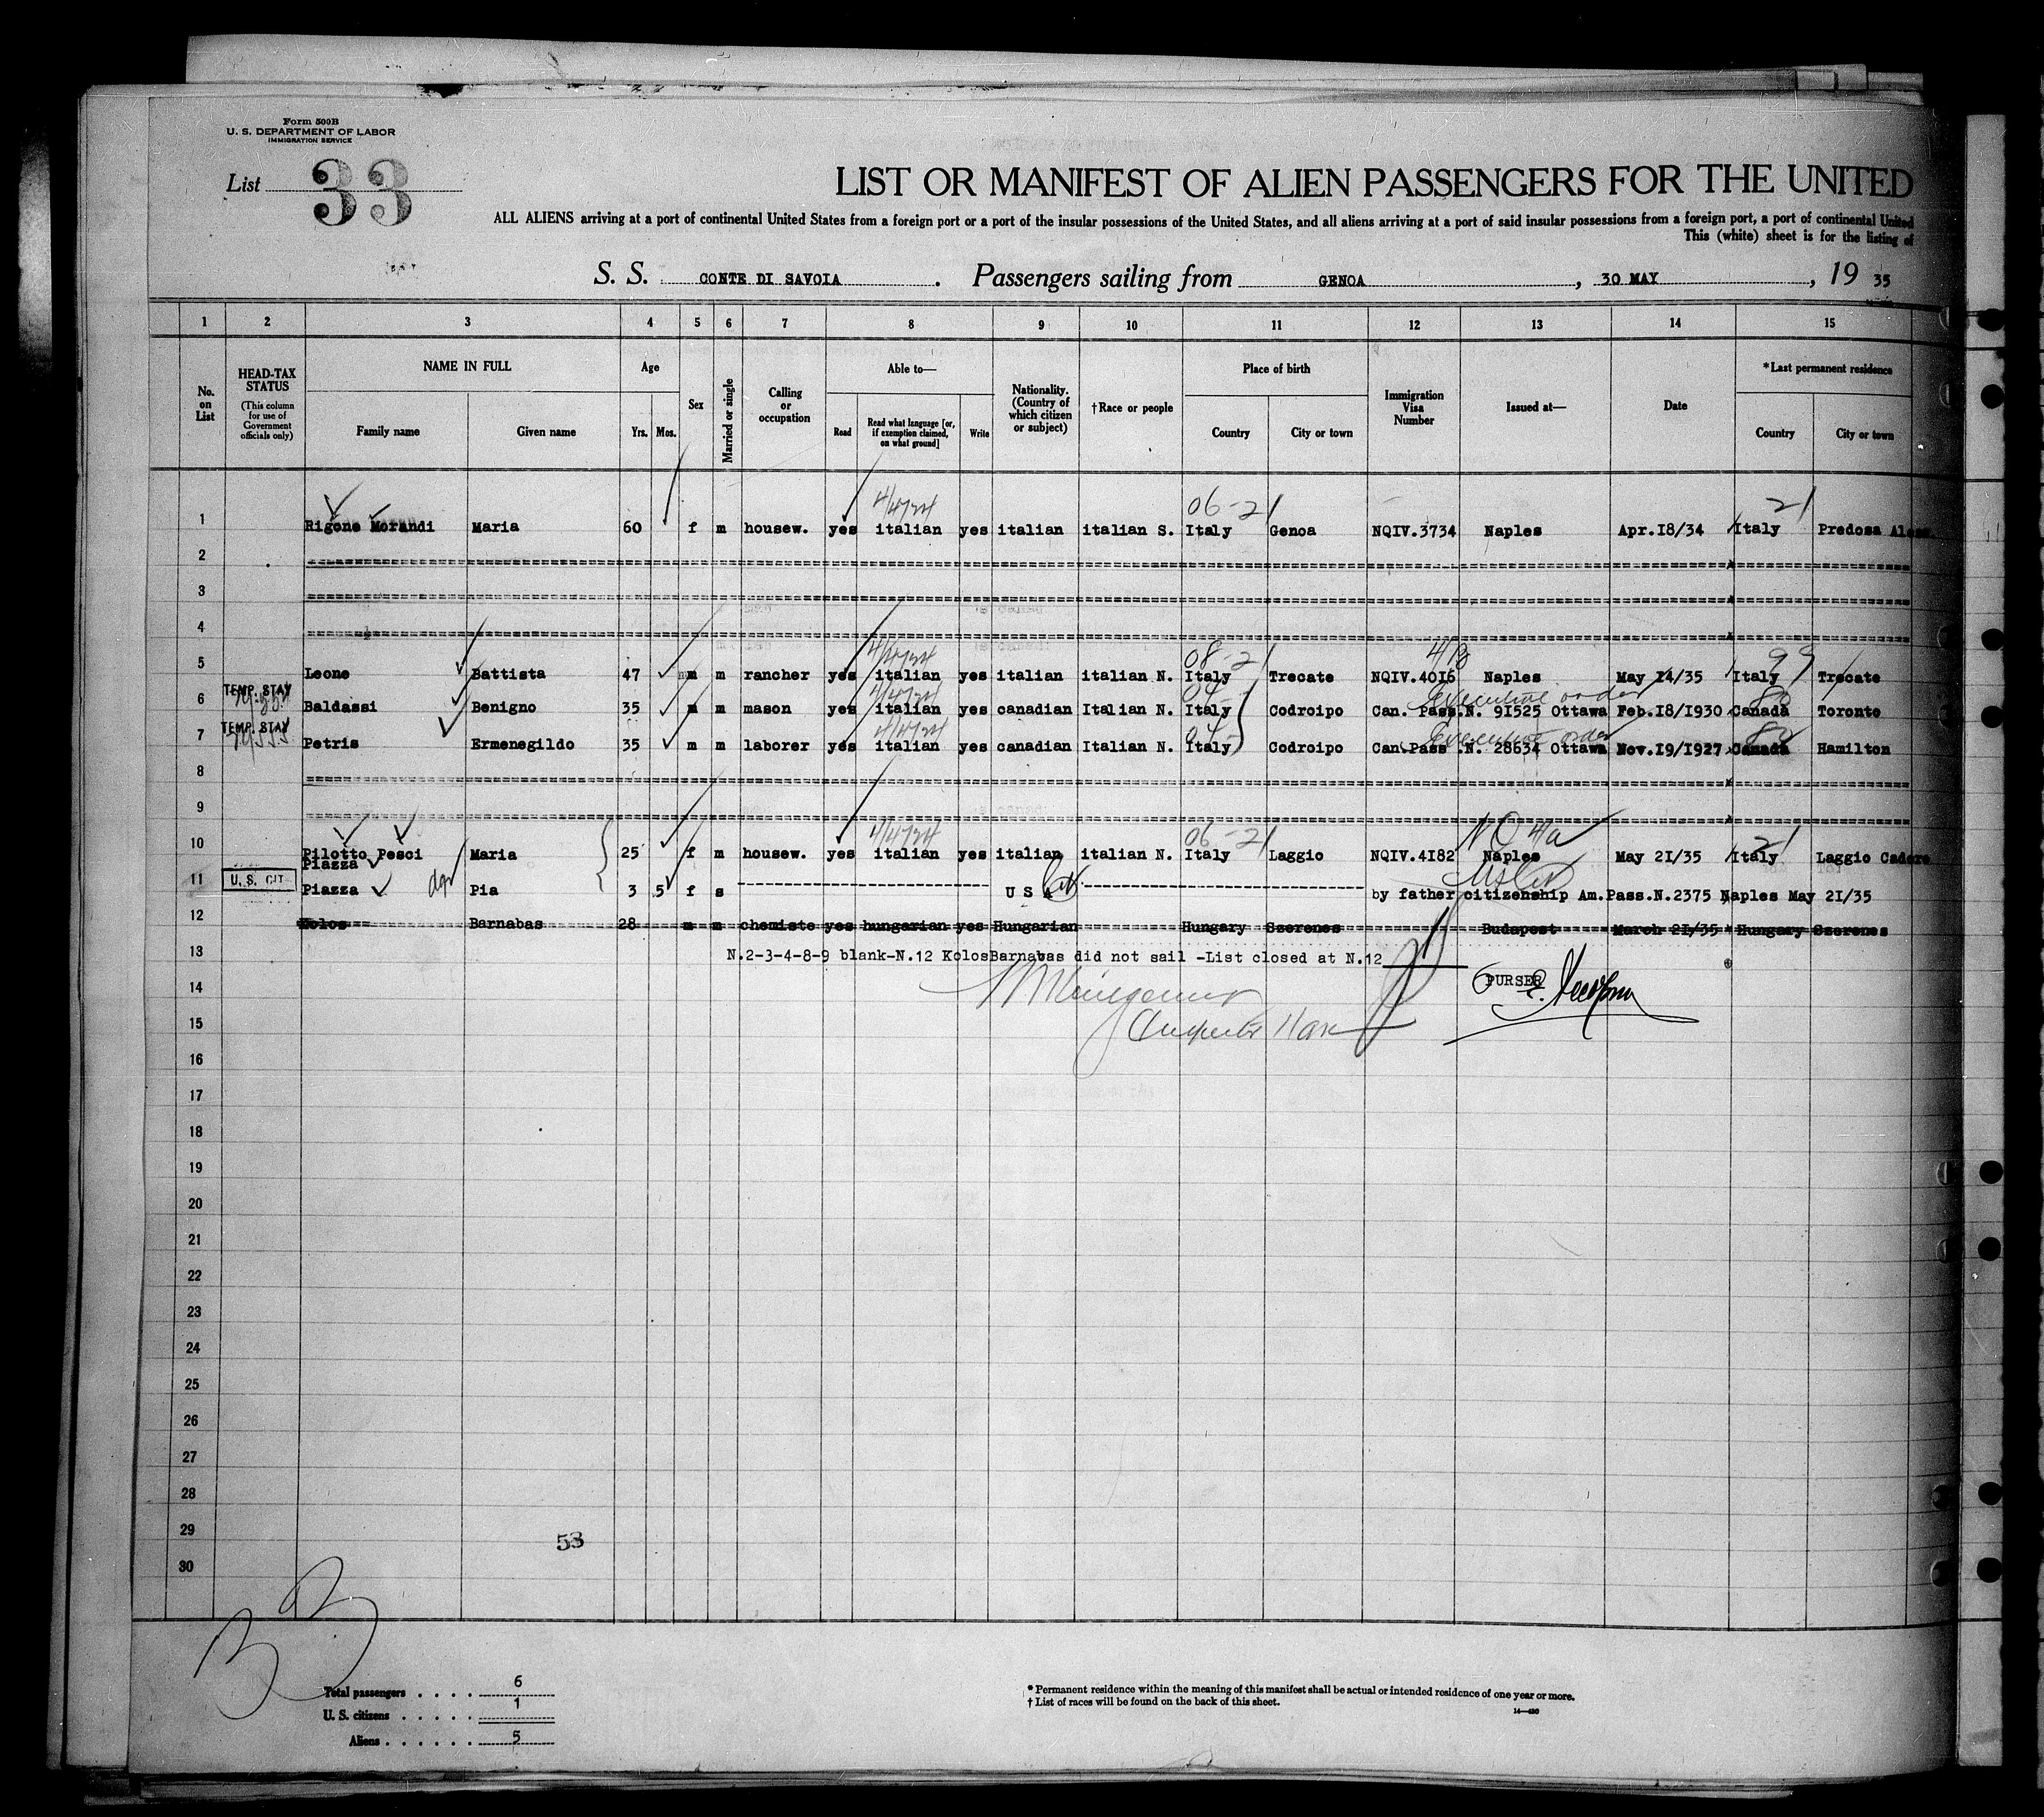 Form 500B
U. S. DEPARTMENT OF LABOR
IMMIGRATION SERVICE
List 33
LIST OR MANIFEST OF ALIEN PASSENGERS FOR THE UNITED
ALL ALIENS arriving at a port of continental United States from a foreign port or a port of the insular possessions of the United States, and all aliens arriving at a port of said insular possessions from a foreign port, a port of continental United
This (white) sheet is for the listing of
S. S. CONTE DI SAVOIA . Passengers sailing from GENOA , 30 MAY , 19 35
1 2 3 4 5 6 7 8 9 10 11 12 13 14 15
No. on List
HEAD-TAX STATUS (This column for use of Government officials only)
NAME IN FULL Family name Given name
Age Yrs. Mos.
Sex
Married or single
Calling or occupation
Able to— Read Read what language [or, if exemption claimed, on what ground] Write
Nationality. (Country of which citizen or subject)
†Race or people
Place of birth Country City or town
Immigration Visa Number
Issued at—
Date
*Last permanent residence Country City or town
06-21 21
1 Rigone Morandi Maria 60 f m housew. yes italian yes italian italian S. Italy Genoa NQIV.3734 Naples Apr.18/34 Italy Predosa
2
3
4
08-21 99
5 Leone Battista 47 m m rancher yes italian yes italian italian N. Italy Trecate NQIV.4016 Naples May 14/35 Italy Trecate
TEMP. STAY Executive order
6 Baldassi Benigno 35 m m mason yes italian yes canadian Italian N. Italy Codroipo Can. Pass.N. 91525 Ottawa Feb.18/1930 Canada Toronto
TEMP. STAY Executive order
7 Petris Ermenegildo 35 m m laborer yes italian yes canadian Italian N. Italy Codroipo Can.Pass .N. 28634 Ottawa Nov.19/1927 Canada Hamilton
8
9
06-21 21
10 Pilotto Pesci Maria 25 f m housew. yes italian yes italian italian N. Italy Laggio NQIV.4182 Naples May 21/35 Italy Laggio Cadore
Piazza
11 U. S. CIT. Piazza Pia 3 5 f s U S A by father citizenship Am.Pass.N.2375 Naples May 21/35
12 Kolos Barnabas 28 m m chemiste yes hungarian yes Hungarian Hungary Szerenes Budapest March 21/35 Hungary Szerenes
13 N.2-3-4-8-9 blank-N.12 KolosBarnabas did not sail -List closed at N.12
14 PURSER
15
16
17
18
19
20
21
22
23
24
25
26
27
28
29
53
30
Total passengers . . . . 6
U. S. citizens . . . . . 1
Aliens . . . . . . 5
* Permanent residence within the meaning of this manifest shall be actual or intended residence of one year or more.
† List of races will be found on the back of this sheet.
14—430